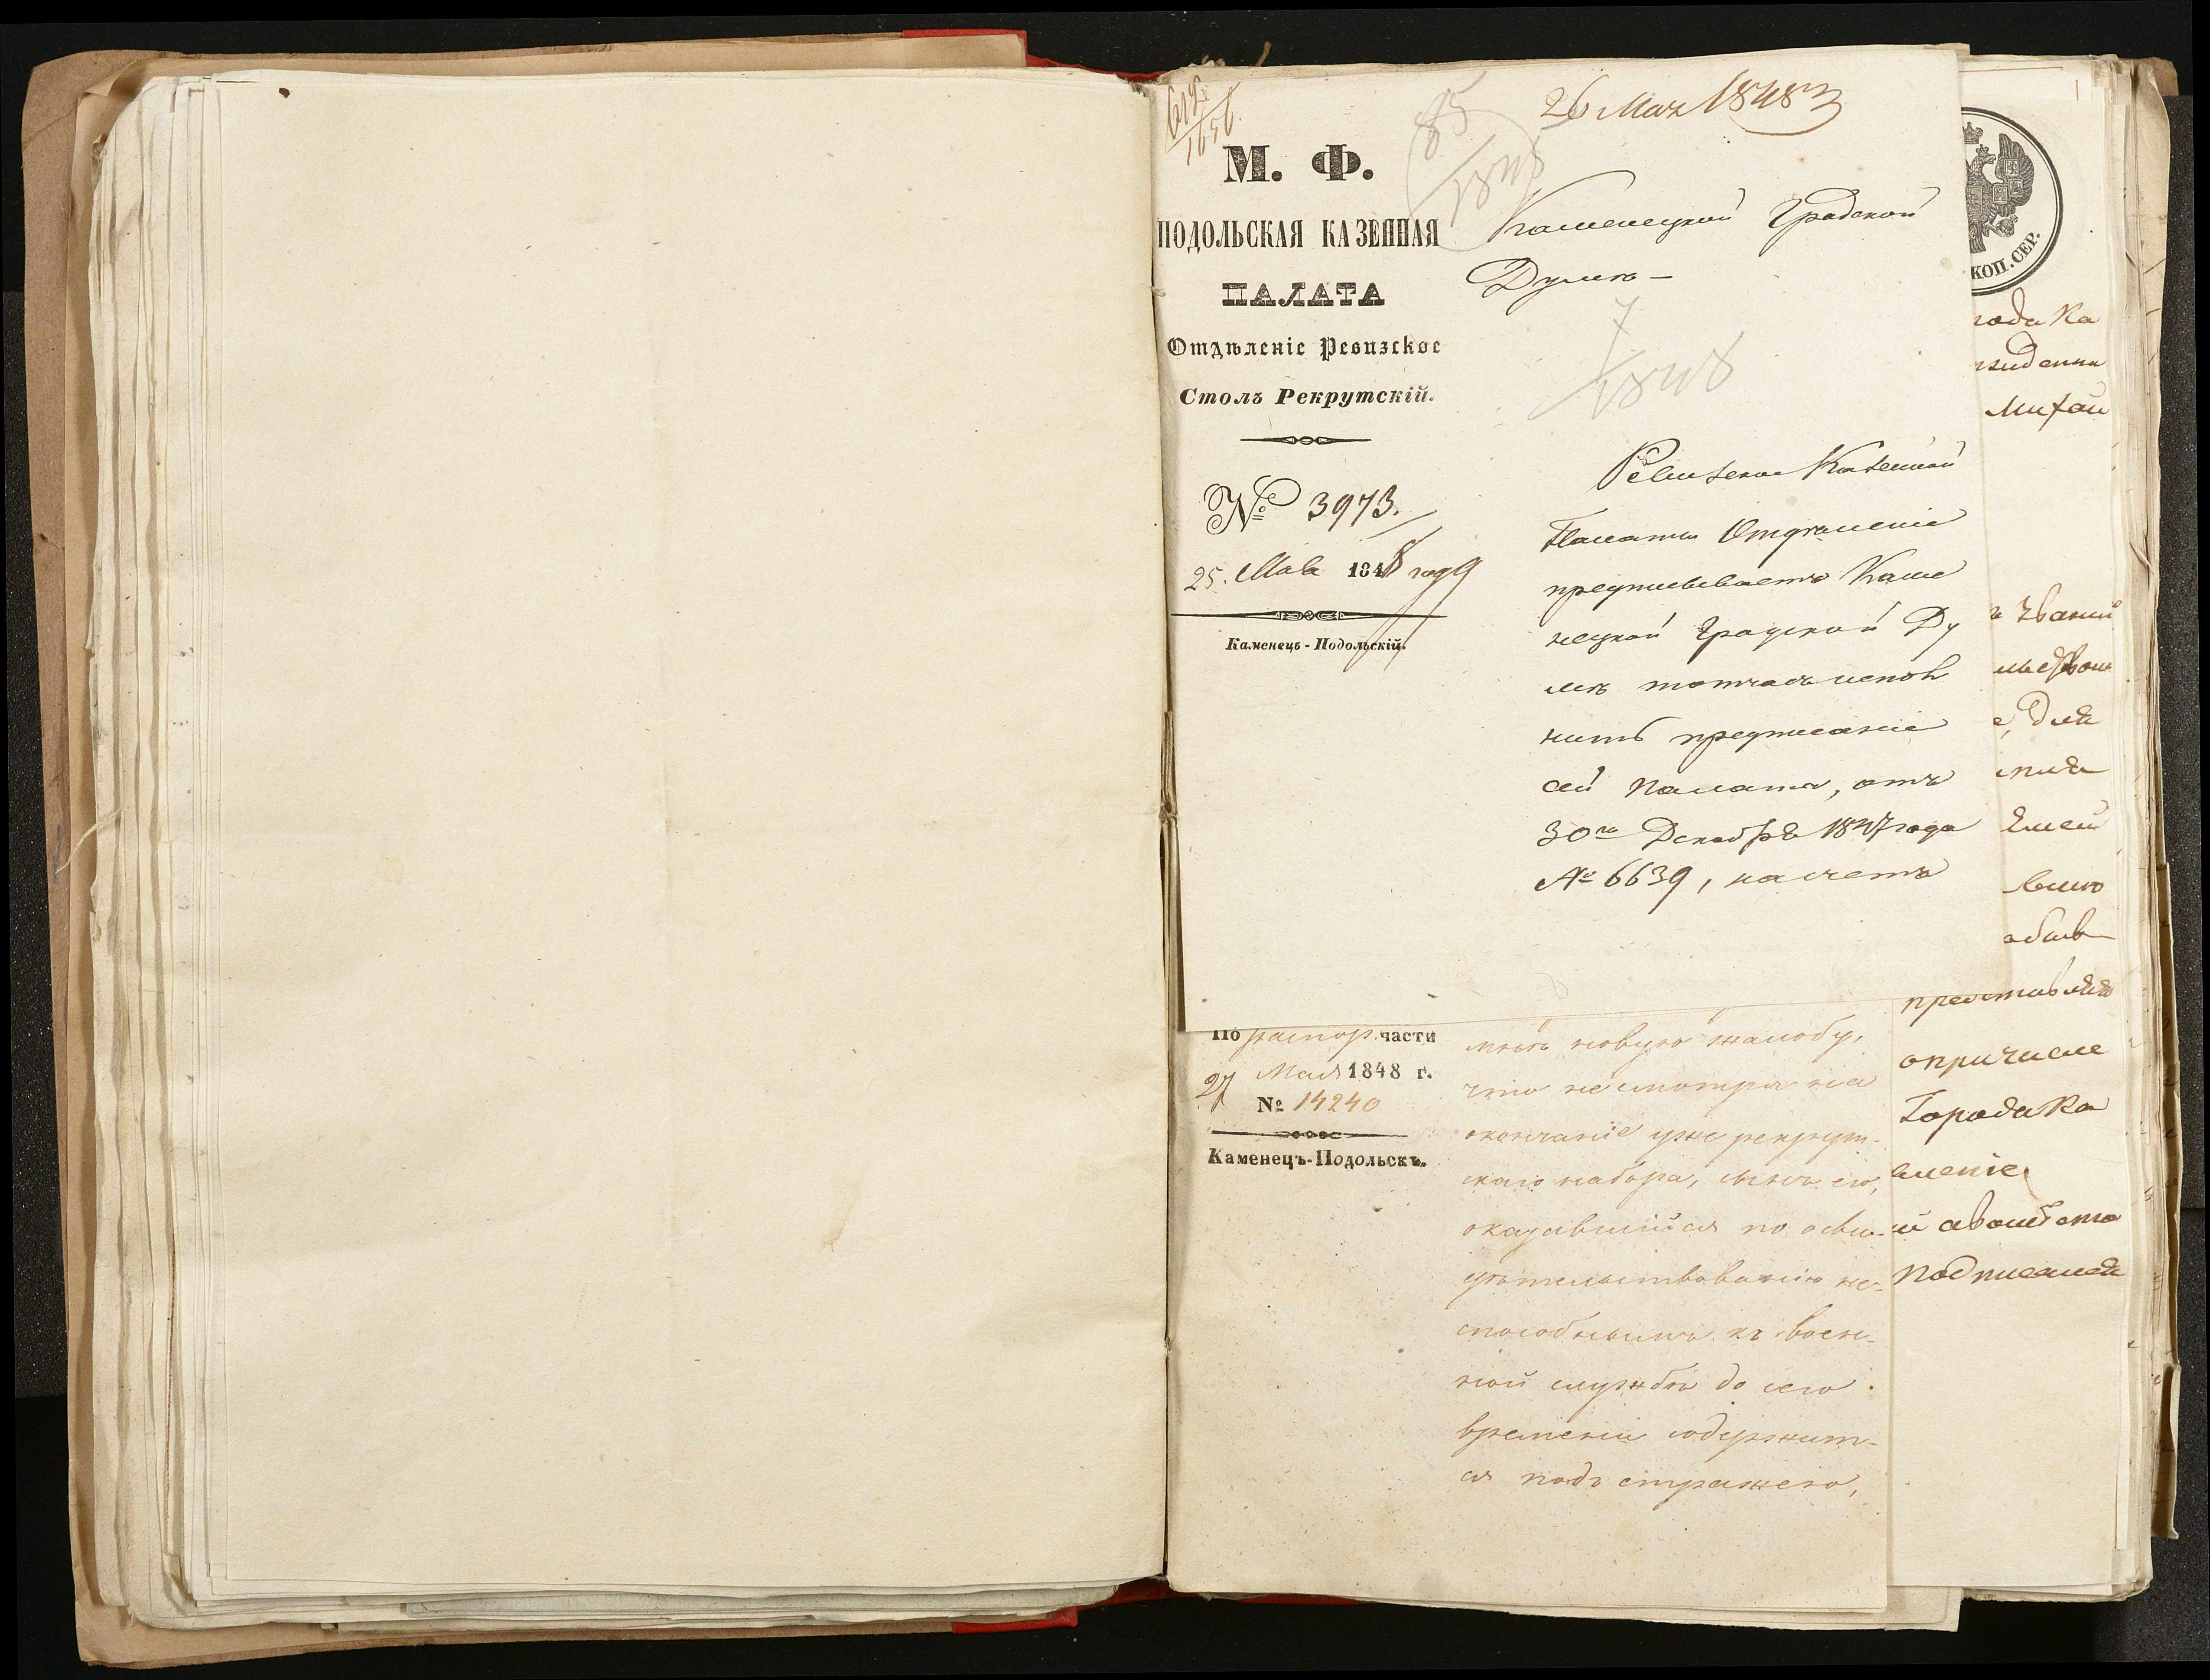 612
1656.
85
1848
26 Мая 1848
М. Ф.
ПОДОЛЬСКАЯ КАЗЕННАЯ
ПАЛАТА
Отдѣленіе Ревизское
Столъ Рекрутскій.
№ 3973.
25. Мая 1848 года
Каменецъ-Подольскій.
Каменецкой Градской
Думѣ —
7
1848
Ревизское Казенной
Палаты Отдѣленіе
предписываетъ Каме
нецкой Градской Ду
мѣ тотчасъ испол
нить предписаніе
сей Палаты, отъ
30го Декабря 1847 года
№ 6639, насчетъ
По распор. части
27 Мая 1848 г.
№ 14240
Каменецъ-Подольскъ.
мнѣ новую жалобу,
что несмотря на
окончаніе уже рекрут-
скаго набора, сынъ его,
оказавшійся по осви-
дѣтельствованію не-
способнымъ къ воен-
ной службѣ до сего
времени содержит-
ся подъ стражею,
КОП. СЕР.
года Ка
Михай
званій
для
представляя
опричисле
Города Ка
вленіе
подписался